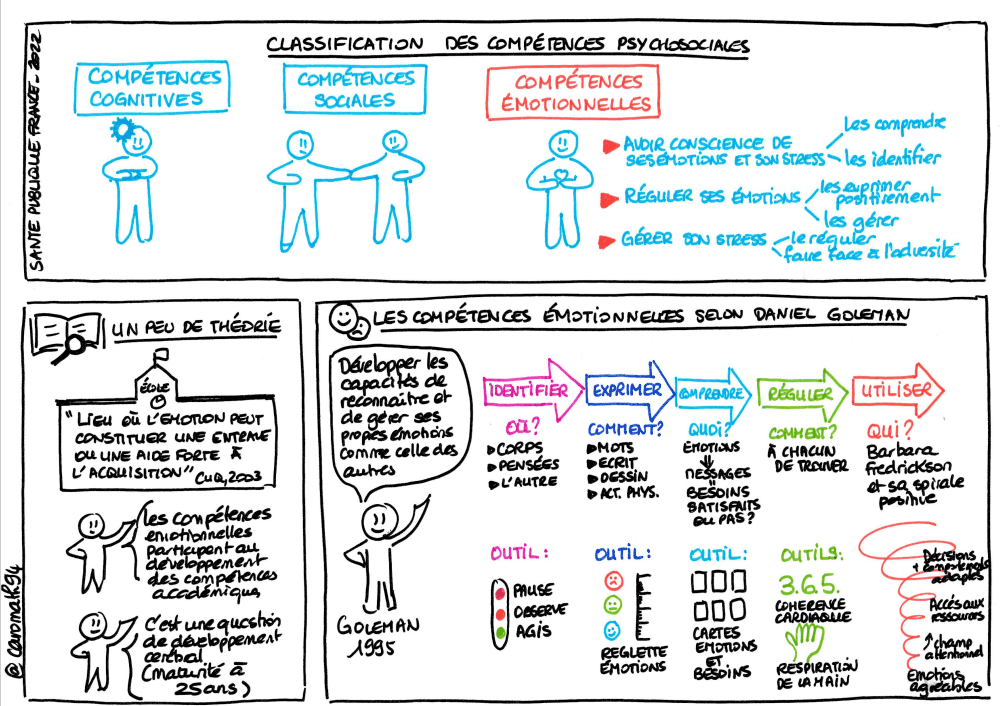 SANTE PUBLIQUE FRANCE - 2022
CLASSIFICATION DES COMPÉTENCES PSYCHOSOCIALES
COMPÉTENCES
COGNITIVES
COMPÉTENCES
SOCIALES
COMPÉTENCES
ÉMOTIONNELLES
AVOIR CONSCIENCE DE
SES ÉMOTIONS ET SON STRESS
Les comprendre
les identifier
RÉGULER SES ÉMOTIONS
les exprimer
positivement
les gérer
GÉRER SON STRESS
le réguler
faire face à l'adversité
UN PEU DE THÉORIE
ÉCOLE
"LIEU OÙ L'EMOTION PEUT
CONSTITUER UNE ENTRAVE
OU UNE AIDE FORTE À
L'ACQUISITION" CUQ, 2003
les compétences
emotionnelles
participent au
développement
des compétences
académiques
C'est une question
de développement
cerébral
(maturité à
25 ans)
@ caromatk94
LES COMPÉTENCES ÉMOTIONNELLES SELON DANIEL GOLEMAN
Développer les
capacités de
reconnaitre et
de gérer ses
propes émotions
comme celle des
autres
GOLEMAN
1995
IDENTIFIER
OÙ?
CORPS
PENSÉES
L'AUTRE
OUTIL:
PAUSE
OBSERVE
AGIS
EXPRIMER
COMMENT?
MOTS
ECRIT
DESSIN
ACT. PHYS.
OUTIL:
REGLETTE
ÉMOTIONS
COMPRENDRE
QUOI?
EMOTIONS
MESSAGES
=
BESOINS
SATISFAITS
OU PAS?
OUTIL:
CARTES
EMOTIONS
ET
BESOINS
RÉGULER
COMMENT?
À CHACUN
DE TROUVER
OUTILS:
3.6.5.
COHERENCE
CARDIAQUE
RESPIRATION
DE LA MAIN
UTILISER
QUI?
Barbara
Fredrickson
et sa spirale
positive
Décisions
+ comportements
adaptés
Accès aux
ressources
↑ champ
attentionnel
Emotions
agréables